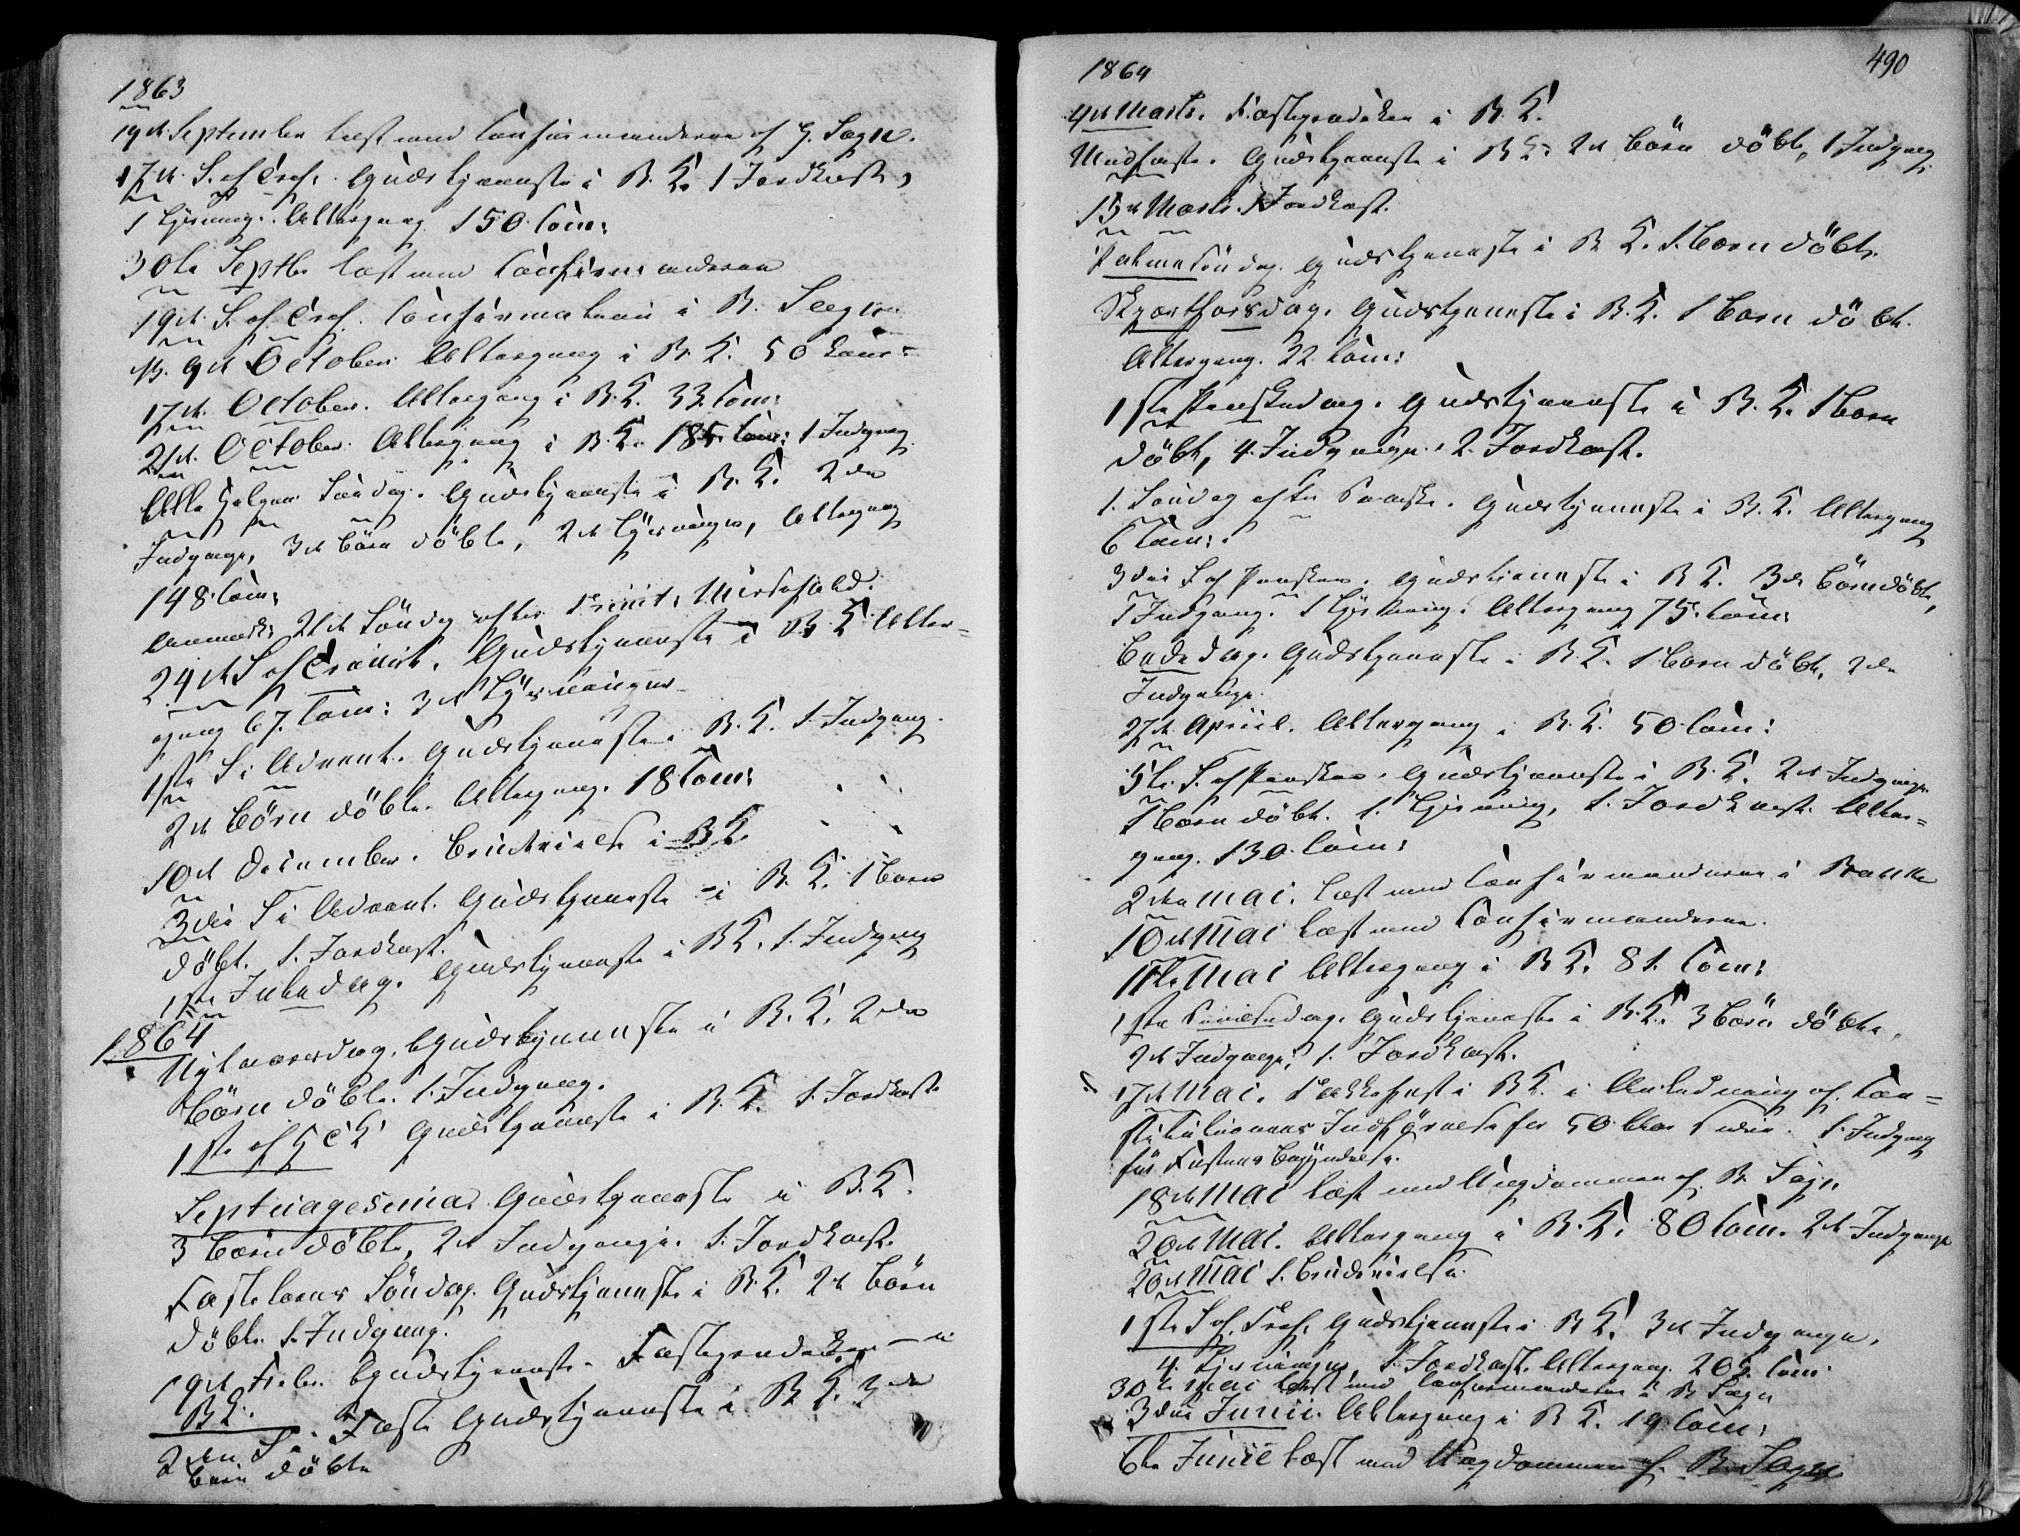 1863
19d September læst med Confirmanderne af H. Sogn.
17d S. ef Tref. Gudstjeneste i B. K. 1 Jordkast,
1 Lysning. Altergang 150 Com:
30te Septbr læst med Confirmanderne
19d S. ef. Tref. Confirmation i B. Sogn.
9d October Altergang i B. K. 50 Com:
17d October. Altergang i B. K. 33 Com:
21d October. Altergang i B. K. 185 Com: 1 Indgang
Alle Helgens Søndag. Gudstjeneste i B. K. 2de
Indgange, 3d Børn døbte, 2d Lysninger, Altergang
148 Com:
Anmærk: 21d Søndag efter Trinit: Messefald.
24d S ef Trinit. Gudstjeneste i B K Alter=
gang 67. Com: 3d Lysninger
1ste S i Advent. Gudstjeneste i B. K. 1. Indgang.
2d Børn døbte. Altergang. 18 Com:
10d December. Brudevielse i B K.
3die S i Advent. Gudstjeneste i B. K. 1 Barn
døbt. 1. Jordkast.
1ste Juledag. Gudstjeneste i B K. 1. Indgang
1864
Nytaarsdag. Gudstjeneste i B. K. 2de
Børn døbte. 1. Indgang.
1ste ef H 3 K Gudstjeneste i B. K. 1. Jordkast
Septuagesima. Gudstjeneste i B. K.
3 Børn døbte, 2d Indgange. 1. Jordkast.
Fastelavns Søndag. Gudstjeneste i B. K. 2d Børn
døbte. 1. Indgang.
19d Febr. Gudstjeneste. Fasteprædiken i
B K.
2den S i Faste Gudstjeneste i B K. 2de
Børn døbte
1864
490
4d Marts. Fasteprædiken i B. K.
Midfaste. Gudstjeneste i B K. 2d Børn døbte, 1 Indgang
15d Marts. 1 Jordkast.
Palmesøndag. Gudstjeneste i B K. 1. Barn døbt.
Skjærthorsdag. Gudstjeneste i B. K. 1 Barn døbt.
Altergang. 22 Com:
1ste Paaskedag. Gudstjeneste i B. K. 1 Barn
døbt, 4. Indgange. 2. Jordkast.
1. Søndag efter Paaske. Gudstjeneste i B. K. Altergang
6 Com:
3die S ef Paasken. Gudstjeneste i B K. 3de Børn døbte,
1 Indgang. 1 Lysning. Altergang 75. Com:
Bededag. Gudstjeneste i B. K. 1 Barn døbt, 2de
Indgange.
27d Apriil. Altergang i B. K. 50 Com:
5te S. ef Paasken. Gudstjeneste i B. K. 2d Indgange
1 Barn døbt. 1. Lysning, 1. Jordkast. Alter=
gang. 130. Com:
2den Mai. læst med Confirmanderne i
10d Mai læst med Confirmanderne.
11te Mai Altergang i B K. 81. Com:
1ste Pintsedag. Gudstjeneste i B. K. 3 Børn døbte.
2d Indgange, 1. Jordkast.
17d Mai. Takkefest i B K. i Anledning af Con=
stitutionens Indførelse for 50 Aar siden. 1. Indgang
før Festens Begyndelse.
18d Mai læst med Ungdommen af B Sogn
20d Mai. Altergang i B. K. 80 Com. 2d Indgange
20d Mai 1. Brudevielse.
1ste S ef. Tref. Gudstjeneste i B K. 3d Indgange,
4. Lysninger, 1. Jordkast. Altergang. 205 Com.
30te Mai læst med Confirmanderne i B Sogn
3die Junii. Altergang i B K. 19. Com:
6te Junii læst med Ungdommen af B. Sogn